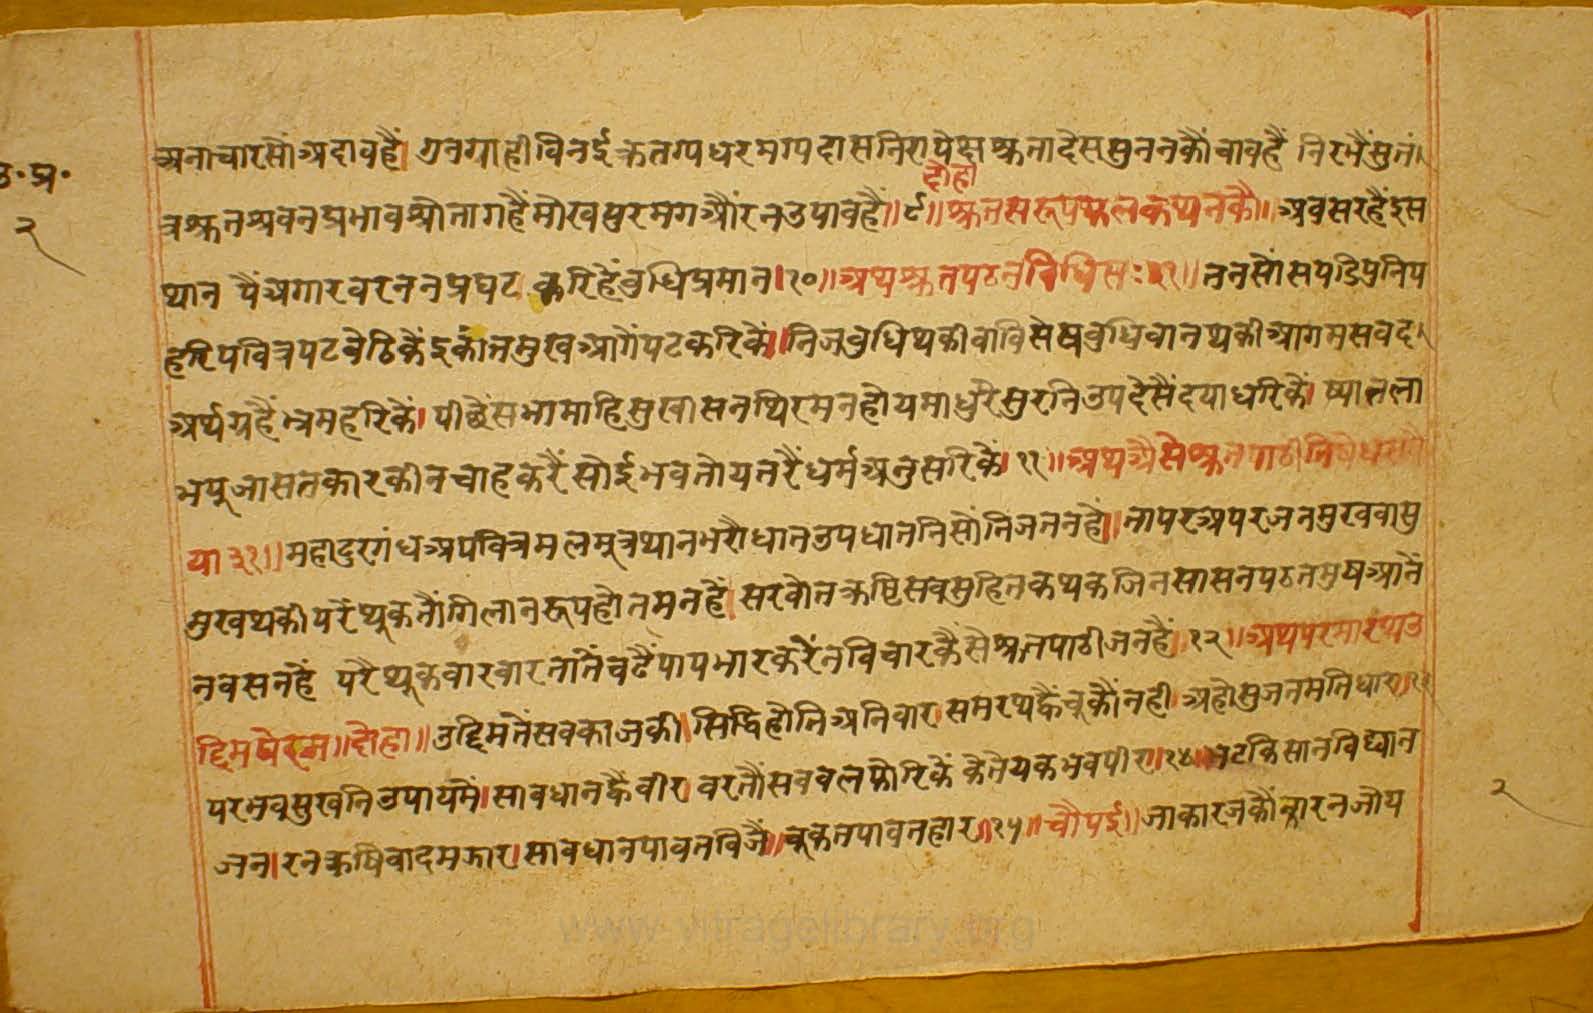 उ.प्र.
२
अनाचारसौं अदावहैं। गुनग्राही विनई क्रतग्य धरमग्य दास निरापेक्ष श्रुतादेस सुननकौं चावहैं निरभैं सुतां
दोहा
त्र श्रुत श्रवन प्रभाव श्रोता गहैं मोखपुर मग औरन उपावहैं॥९॥ श्रुत सरूप फल कथनकौ॥ अवसर हैं इस
थान यैं अगार वरनन प्रघट करिहैं वुधि प्रमान।१०॥ अथ श्रुत पठन विधि सः३१॥ तनसौं सपडि पुनि प
हरि पवित्र पट वेठिकैं इकांत मुख आगैं पट करिकैं॥ निज वुधि थकी वा विसेष वुधिवान थकी आगम सवद
अर्थ ग्रहैं भ्रम हरिकैं। पीछैं सभा माहि सुखासन थिर मन होय माधुरै सुरनि उपदेसैं दया धरिकैं। ष्यात ला
भ पूजा सतकारकी न चाह करैं सोई भव तोय तरैं धर्म अनुसरिकैं।११॥ अथ अैसे श्रुतपाठी निषेध सवै
या ३१॥ महा दुरगंध अपवित्र मल मूत्र थान भरौ धान उपधाननिसौं निज तन हैं॥ तापर अपर जन मुख वा सु
मुख थकी परैं थूक तौं गिलान रूप होत मन हैं। सरवोतक्रष्टि सवसु हित कथक जिन सासन पठत मुष आंनैं
न वसन हैं परै थूक वारवार तातैं वढैं पाप भार करें न विचार कैसे श्रुतपाठी जन हैं।१२॥ अथ परमारथ उ
द्दिम प्रेरन॥दोहा॥ उद्दिमतैं सव काजकी। सिद्धि होति अनिवार। समरथ ह्वैं चूकौं नही। अहो सुजन मति धार॥१३
परभव सुखनि उपायमैं। सावधान ह्वैं वीर। वरतौं सव वल फोरिकैं केतेयक भव पीर॥१४॥ भट किसान विद्यान
जन। रन क्रषि वाद मझार। सावधान पावत विजैं॥ चूकत पावत हार॥१५॥ चौपई॥ जा कारजकौं कारन जोय
२
www.vitragelibrary.org